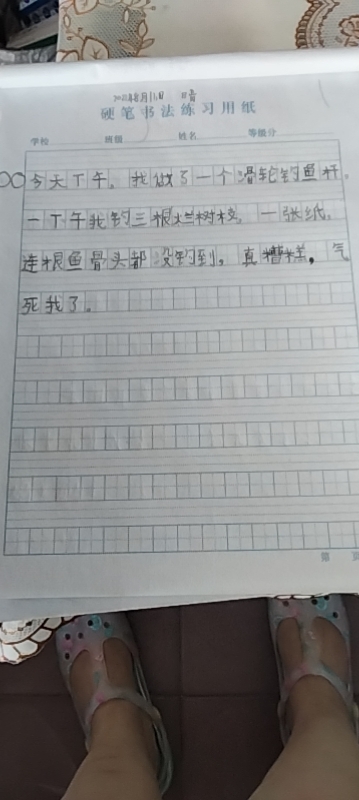 2022年8月11日 晴
硬笔书法练习用纸
学校 班级 姓名 等级分
今天下午。我做了一个滑轮钓鱼杆。
一下午我钓三根烂树枝。一张纸。
连根鱼骨头都没钓到。真糟糕，气
死我了。
第 页